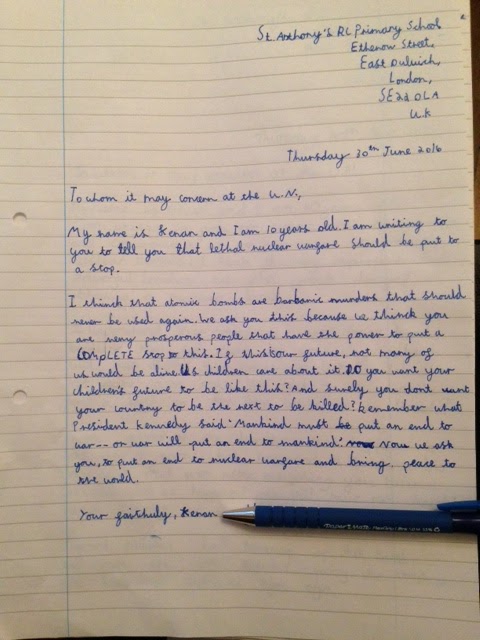 St. Anthony's RL Primary School
Etherow Street,
East Dulwich,
London,
SE22 OLA
U.K
Thursday 30th June 2016
To whom it may concern at the U.N.,
My name is Kenan and I am 10 years old. I am writing to
you to tell you that lethal nuclear warfare should be put to
a stop.
I thinck that atomic bombs are barbaric murders that should
never be used again. We ask you this because we thinck you
are very prosperous people that have the power to put a
COMPLETE stop to this. If this is our future, not many of
us would be alive. Us children care about it. DO you want your
children's future to be like this? And surely you dont want
your country to be the next to be killed? Remember what
President Kennedy said: Mankind must be put an end to
war-- or war will put an end to mankind. Now we ask
you, to put an end to nuclear warfare and bring peace to
the world.
Your faithuly, Kenan